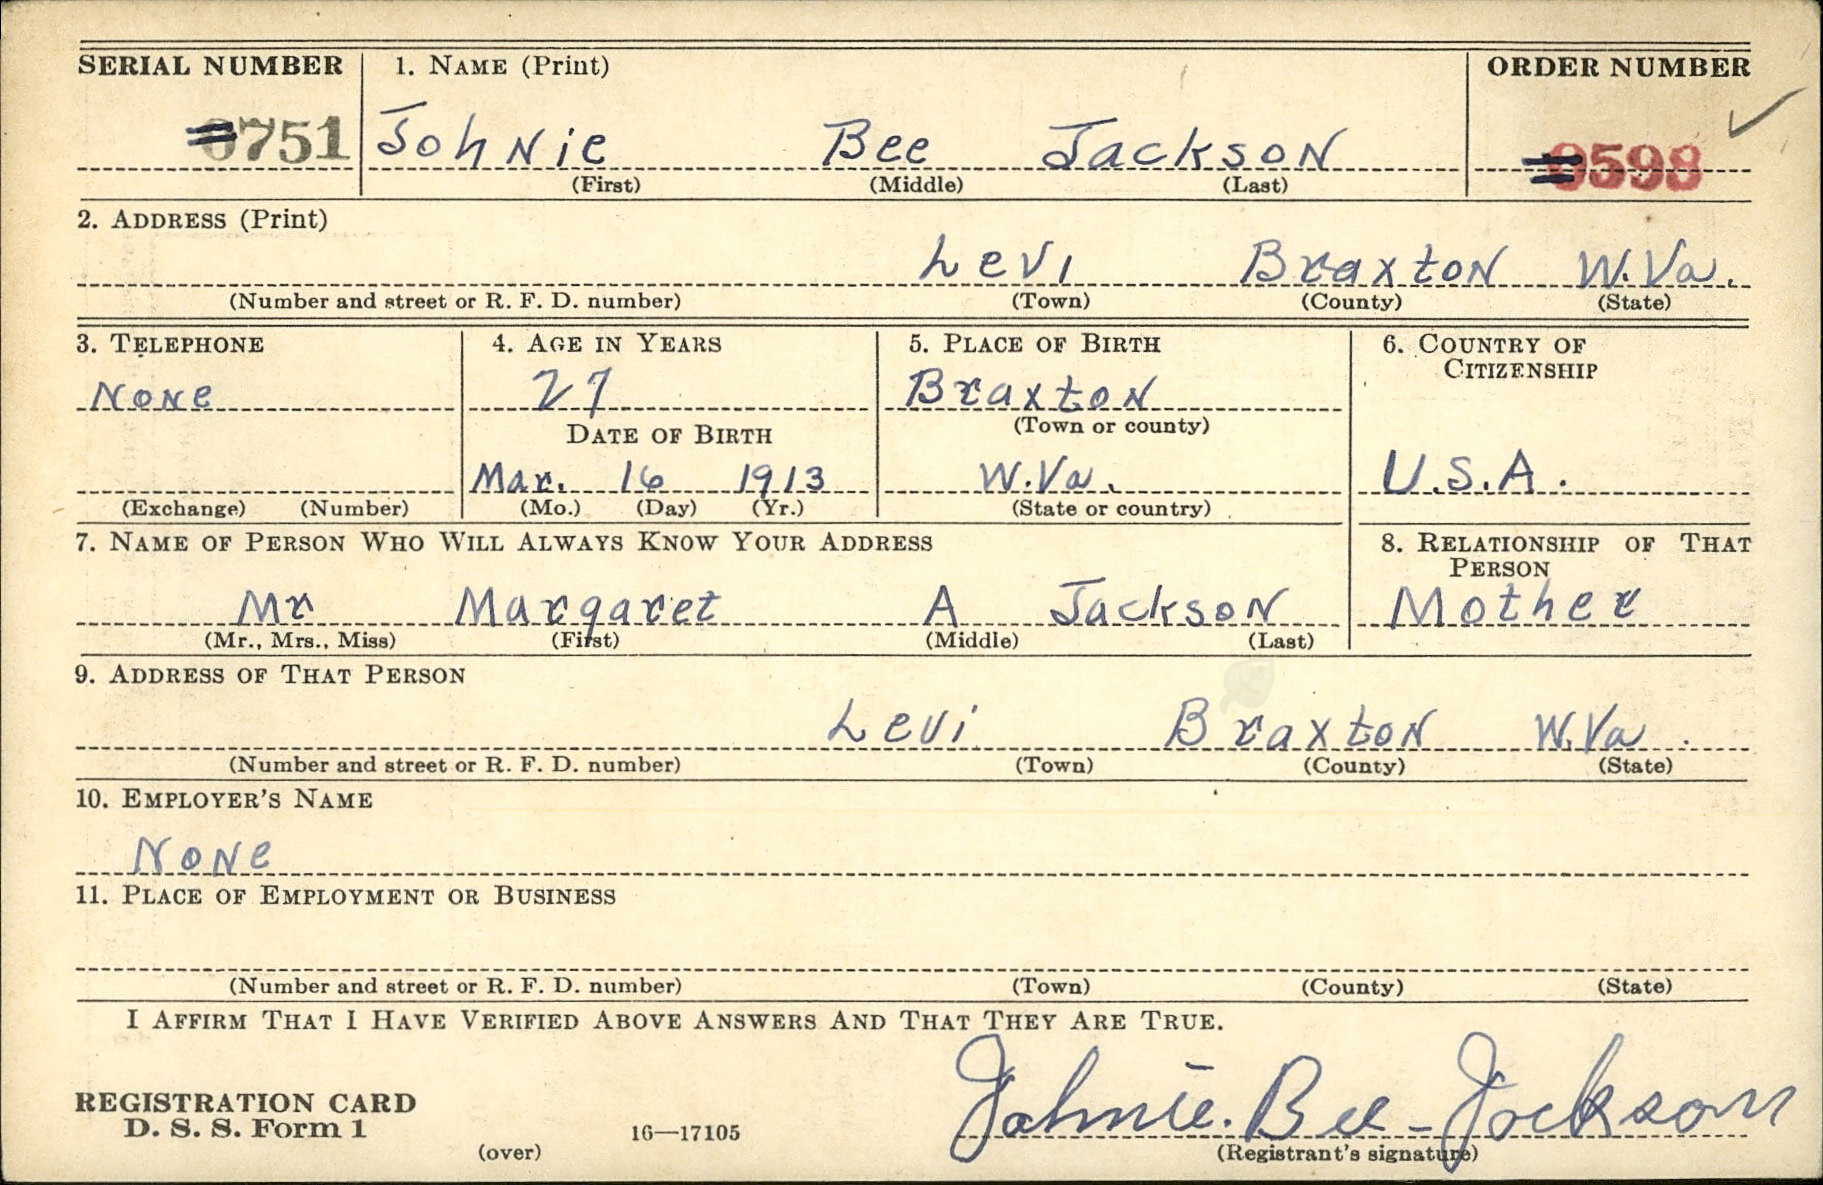 SERIAL NUMBER 1. NAME (Print) ORDER NUMBER
0751 Johnie Bee Jackson 0598
(First) (Middle) (Last)
2. ADDRESS (Print)
Levi Braxton W.Va.
(Number and street or R. F. D. number) (Town) (County) (State)
3. TELEPHONE 4. AGE IN YEARS 5. PLACE OF BIRTH 6. COUNTRY OF
CITIZENSHIP
None 27 Braxton
(Town or county)
DATE OF BIRTH
Mar. 16 1913 W.Va. U.S.A.
(Exchange) (Number) (Mo.) (Day) (Yr.) (State or country)
7. NAME OF PERSON WHO WILL ALWAYS KNOW YOUR ADDRESS 8. RELATIONSHIP OF THAT
PERSON
Mr Margaret A Jackson Mother
(Mr., Mrs., Miss) (First) (Middle) (Last)
9. ADDRESS OF THAT PERSON
Levi Braxton W.Va.
(Number and street or R. F. D. number) (Town) (County) (State)
10. EMPLOYER'S NAME
None
11. PLACE OF EMPLOYMENT OR BUSINESS
(Number and street or R. F. D. number) (Town) (County) (State)
I AFFIRM THAT I HAVE VERIFIED ABOVE ANSWERS AND THAT THEY ARE TRUE.
REGISTRATION CARD
D. S. S. Form 1 16—17105 Johnie. Bee - Jackson
(over) (Registrant's signature)